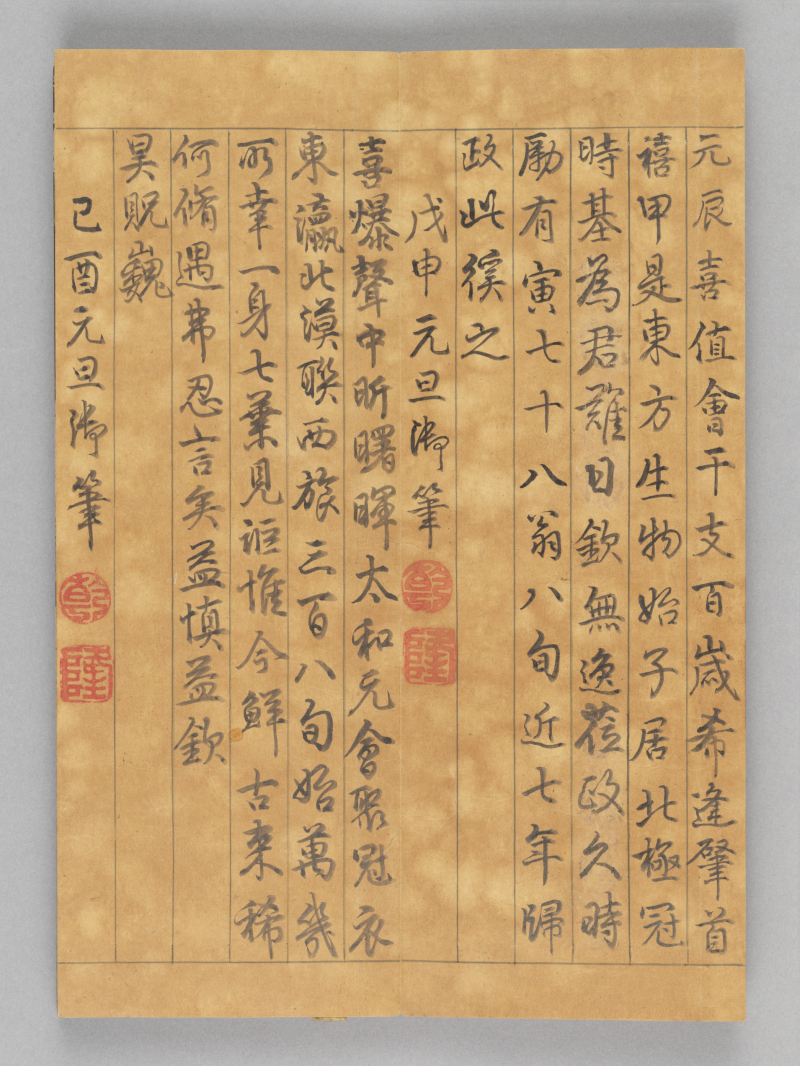 元辰喜值會干支百歲希逢肇首
禧甲是東方生物始子居北極冠
時基為君難日欽無逸蒞政久時
勵有寅七十八翁八旬近七年歸
政此徯之
戊申元旦御筆
乾
隆
喜爆聲中昕曙暉太和元會聚冠衣
東瀛北漠聯西旅三百八旬始萬幾
所幸一身七葉見詎惟今鮮古来稀
何脩遇弗忍言矣益慎益欽
昊貺巍
己酉元旦御筆
乾
隆